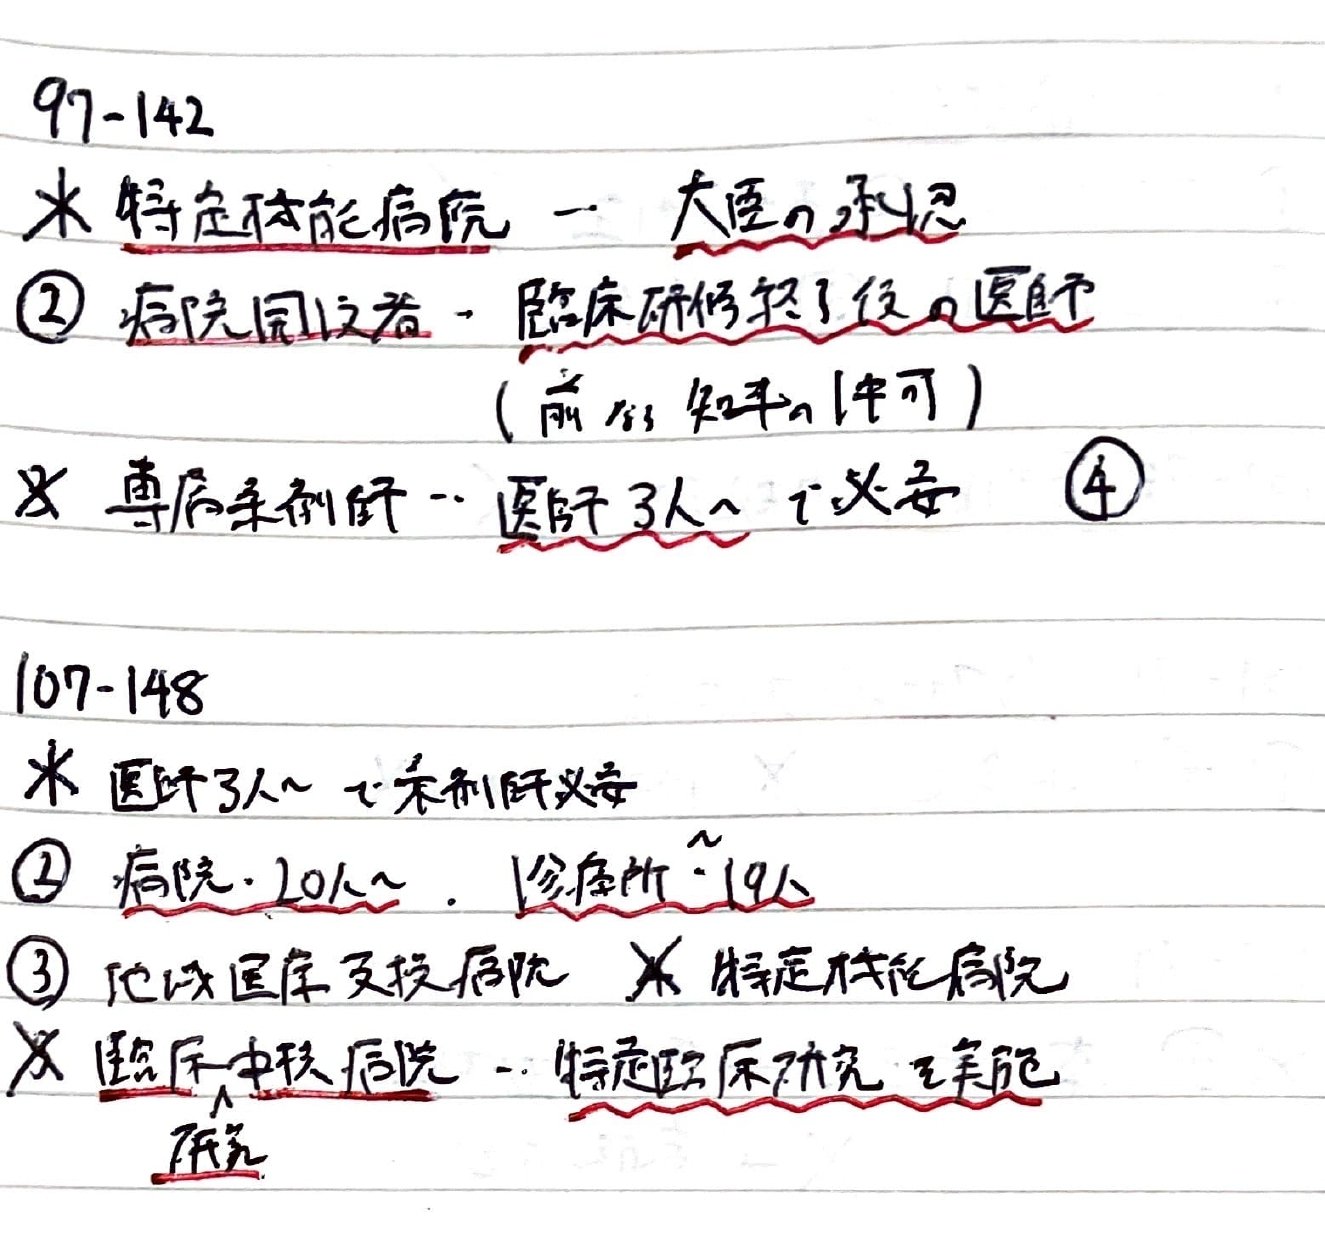 97-142
* 特定機能病院 ー 大臣の承認
② 病院開設者 ・ 臨床研修終了後の医師
(前なら知事の許可)
※ 専属薬剤師 … 医師3人~で必要 ④
107-148
* 医師3人~で薬剤師必要
② 病院・20人~ . 診療所・~19人
③ 地域医療支援病院 ※ 特定機能病院
※ 臨床研究中核病院 … 特定臨床研究を実施